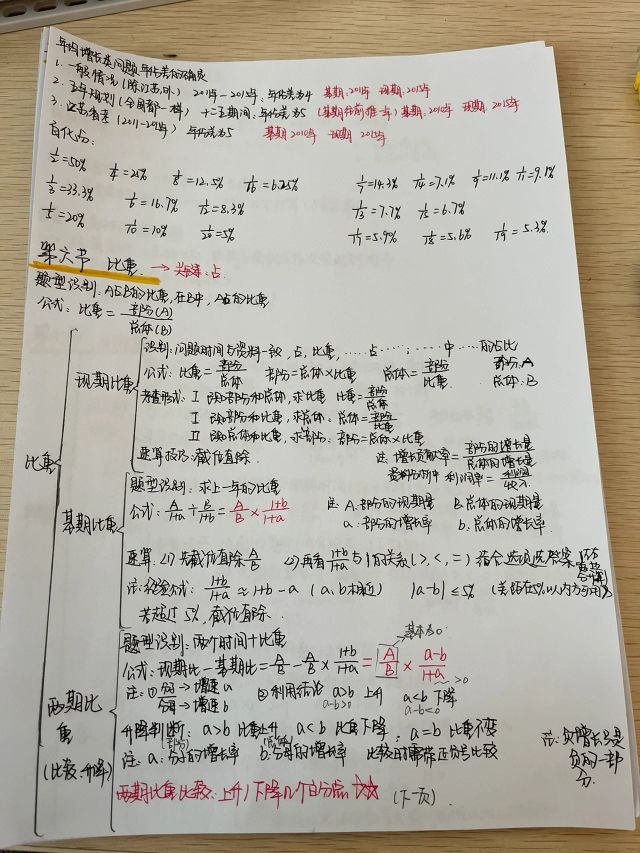 年均增长类问题年份差的确定
1. 一般情况(除江苏外) 2011年-2015年:年份差为4 基期:2011年 现期:2015年
2. 五年规划(全国都一样) 十二五期间:年份差为5 (基期往前推一年) 基期:2010年 现期2015年
3. 江苏省考(2011-2015年) 年份差为5 基期2010年 现期2015年
百化分:
1/2=50% 1/4=25% 1/8=12.5% 1/16=6.25% 1/7=14.3% 1/14=7.1% 1/9=11.1% 1/11=9.1%
1/3=33.3% 1/6=16.7% 1/12=8.3% 1/13=7.7% 1/15=6.7%
1/5=20% 1/10=10% 1/20=5% 1/17=5.9% 1/18=5.6% 1/19=5.3%
第六节 比重 → 关键字:占
题型识别:A占B的比重,在B中,A占的比重
公式:比重=部分(A)/总体(B)
比重
现期比重
识别:问题时间与资料一致,占,比重,……占……;……中……的占比
公式:比重=部分/总体 部分=总体×比重 总体=部分/比重 部分:A 总体:B
考查形式:I 已知部分和总体,求比重 比重=部分/总体
II 已知部分和比重,求总体:总体=部分/比重
II 已知总体和比重,求部分:部分=总体×比重
速算技巧:截位直除. 注:增长贡献率=部分的增长量/总体的增长量
资料分析中 利润率=利润/收入
基期比重
题型识别:求上一年的比重
公式:A/1+a ÷ B/1+b = A/B × 1+b/1+a 注:A:部分的现期量 B:总体的现期量
a:部分的增长率 b:总体的增长率
速算:(1)先截位直除A/B (2)再看1+b/1+a与1的关系(>,<,=) 结合选项选答案
注:经验公式:1+b/1+a≈1+b-a (a,b相近) |a-b|≤5% (差距在5%以内方可用)
若超过5%,截位直除.
两期比重
(比较:升降)
题型识别:两个时间+比重
基本为0
公式:现期比-基期比=A/B-A/B×1+b/1+a=A/B×a-b/1+a >0
注:①分子→增速a ②利用结论 a>b 上升 a<b 下降
分母→增速b a-b>0 a-b<0
升降判断:a>b 比重上升 a<b 比重下降;a=b 比重不变
注:a:分子(部分)的增长率 b:分母(总体)的增长率 比较时需带正负号比较
注:负增长号是负的一部分.
两期比重比较:上升/下降几个百分点 ☆☆ (下一页)